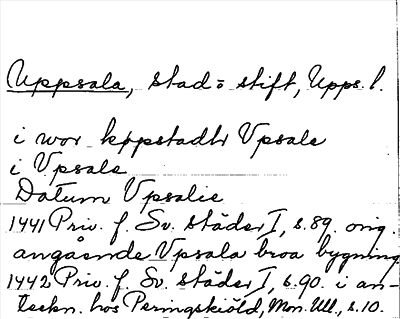 Uppsala, stad o stift, Upps. l.
i wor köpstadh Vpsale
i Vpsale
Datum Vpsalie
1441 Priv. f. Sv. städer I, s. 89. orig.
angående Vpsala broa bygning
1442 Priv. f. Sv. städer I, s. 90. i an-
teckn. hos Peringskiöld, Mon. Ull., s. 10.